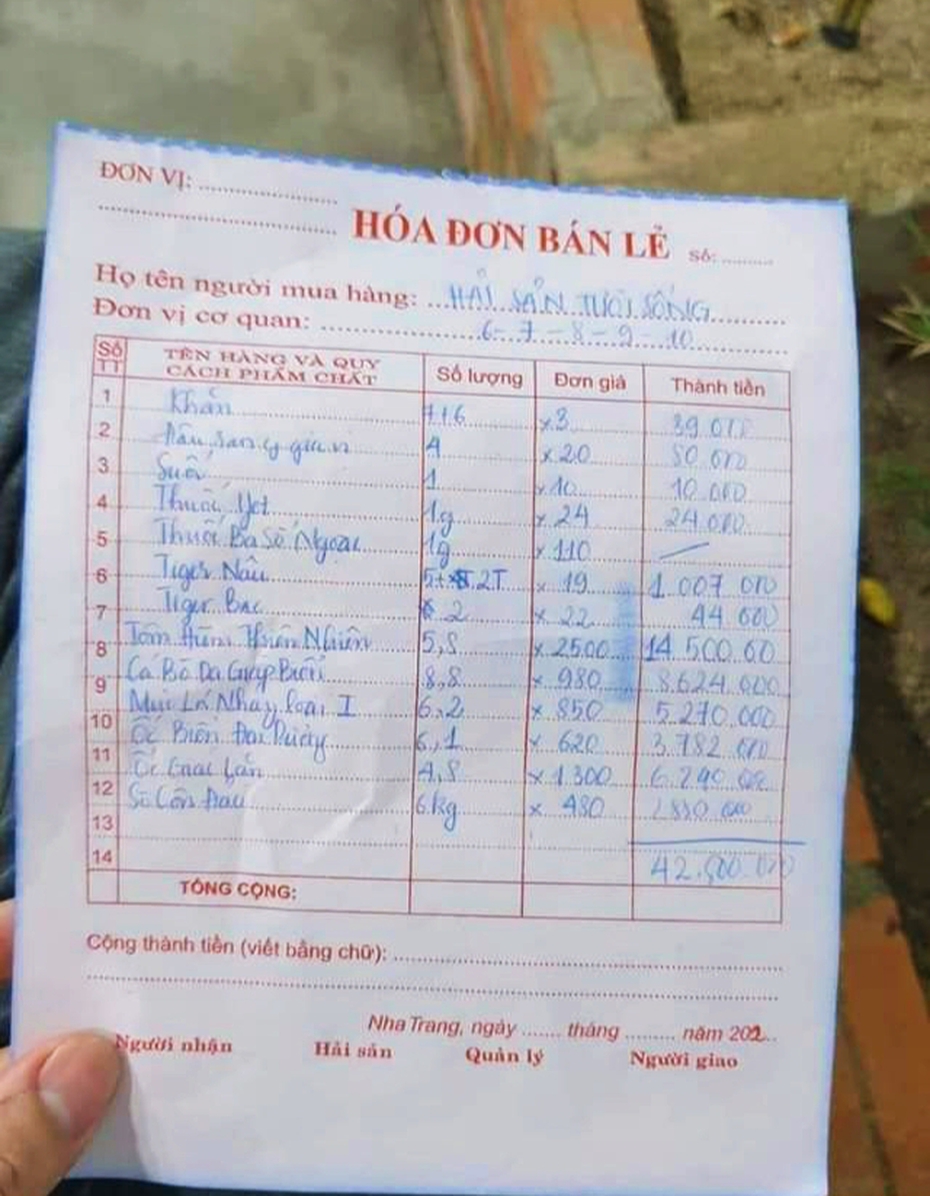 ĐƠN VỊ: ....................
.................... HÓA ĐƠN BÁN LẺ Số: .........
Họ tên người mua hàng: ...HẢI SẢN TƯƠI SỐNG
Đơn vị cơ quan: .................... 6-7-8-9-10
Số TT TÊN HÀNG VÀ QUY CÁCH PHẨM CHẤT Số lượng Đơn giá Thành tiền
1 Khăn 7+6 x3 39.000
2 4 x20 80.000
3 Suối 1 x10 10.000
4 Thuốc Jet 1g x 24 24.000
5 Thuốc Ba Số Ngoại 1g x 110 —
6 Tiger Nâu 2T x 19 1.007.000
7 Tiger Bạc 2 x 22 44.000
8 Tôm Hùm Thiên Nhiên 5,8 x 2500 14.500.00
9 Cá Bò Da Giáp Biển 8,8 x 980 8.624.000
10 Mực Lá Nháy loại I 6,2 x 850 5.270.000
11 Ốc Biển 6,1 x 620 3.782.000
12 Ốc 4,8 x 1300 6.240.00
13 Sò 6kg x 480 2880.000
14 42.500.000
TỔNG CỘNG:
Cộng thành tiền (viết bằng chữ): ....................
Nha Trang, ngày ....... tháng ......... năm 202...
Người nhận Hải sản Quản lý Người giao